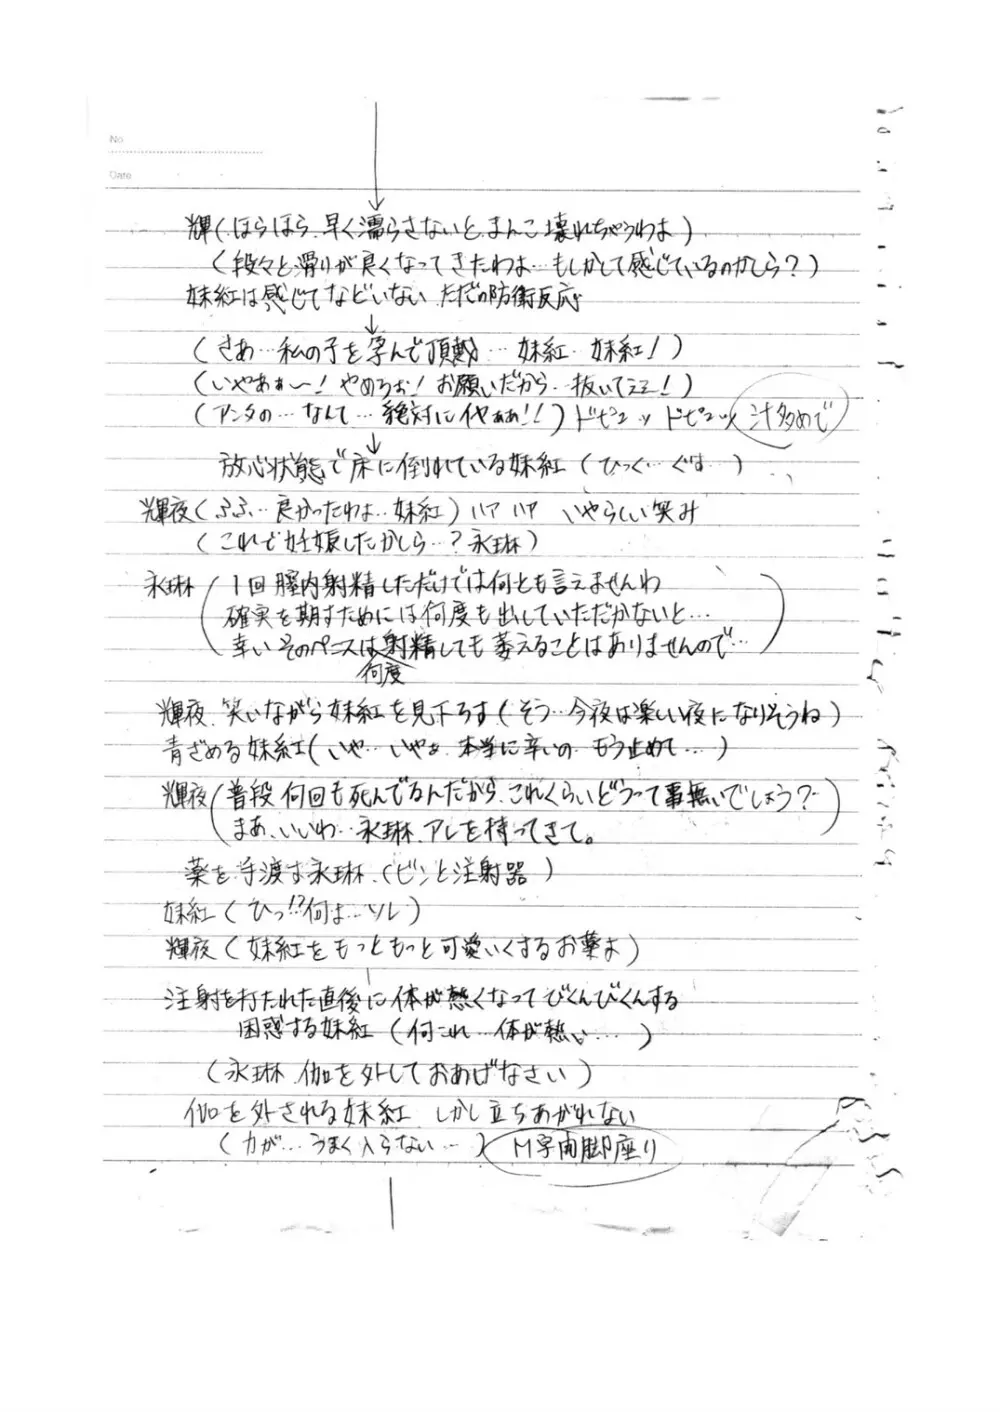 No
Date
輝(ほらほら、早く濡らさないと、まんこ壊れちゃうわよ)
(段々と滑りが良くなってきたわよ…もしかして感じているのかしら?)
妹紅は感じてなどいない ただの防衛反応
(さあ…私の子を孕んで頂戴…妹紅…妹紅!)
(いやあぁ〜!やめろぉ!お願いだから…抜いてぇぇ!)
(アンタの…なんて…絶対にイヤぁぁ!!)ドピュッ ドピュッ 汁多めで
放心状態で床に倒れている妹紅(ひっく…ぐす…)
輝夜(ふふ…良かったわよ…妹紅)ハァ ハァ いやらしい笑み
(これで妊娠したかしら…?永琳)
永琳(1回膣内射精しただけでは何とも言えませんわ
確実を期すためには何度も出していただかないと…
幸いそのペニスは射精しても萎えることはありませんので…)
何度
輝夜、笑いながら妹紅を見下ろす(そう…今夜は楽しい夜になりそうね)
青ざめる妹紅(いや…いやぁ 本当に辛いの もう止めて…)
輝夜(普段何回も死んでるんだから、これくらいどうって事無いでしょう?
まあ、いいわ…永琳、アレを持ってきて。)
薬を手渡す永琳、(ビンと注射器)
妹紅(ひっ!?何よ…ソレ)
輝夜(妹紅をもっともっと可愛いくするお薬よ)
注射を打たれた直後に体が熱くなってびくんびくんする
困惑する妹紅(何これ…体が熱い…)
(永琳、枷を外しておあげなさい)
枷を外される妹紅 しかし立ちあがれない
(力が…うまく入らない…) M字開脚座り